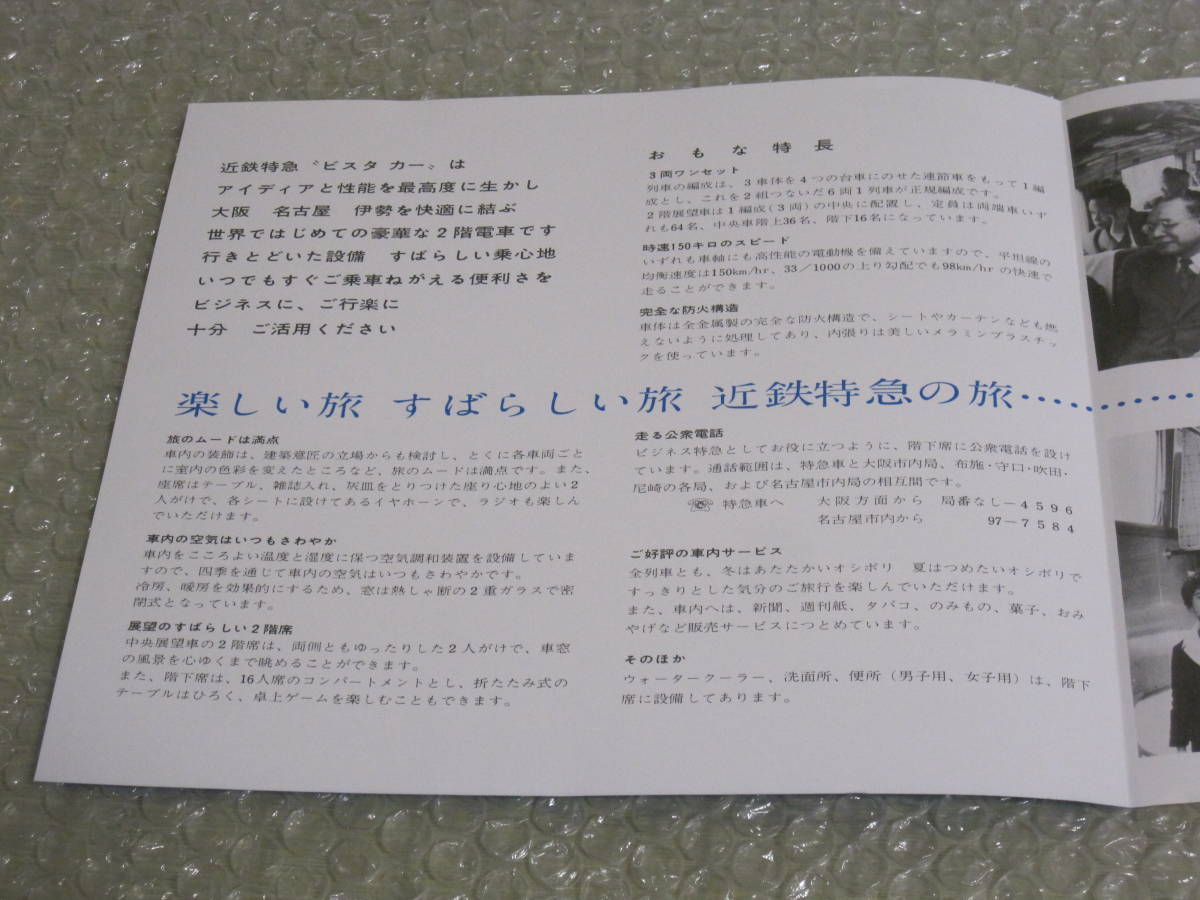 近鉄特急〝ビスタ カー〟は
アイディアと性能を最高度に生かし
大阪　名古屋　伊勢を快適に結ぶ
世界ではじめての豪華な２階電車です
行きとどいた設備　すばらしい乗心地
いつでもすぐご乗車ねがえる便利さを
ビジネスに、ご行楽に
十分　ご活用ください
おもな特長
３両ワンセット
列車の編成は、３車体を４つの台車にのせた連節車をもって１編
成とし、これを２組つないだ６両１列車が正規編成です。
２階展望車は１編成(３両)の中央に配置し、定員は両端車いず
れも64名、中央車階上36名、階下16名になっています。
時速150キロのスピード
いずれも車軸にも高性能の電動機を備えていますので、平坦線の
均衡速度は150km/hr、33／1000の上り勾配でも98km/hrの快速で
走ることができます。
完全な防火構造
車体は全金属製の完全な防火構造で、シートやカーテンなども燃
えないように処理してあり、内張りは美しいメラミンプラスチッ
クを使っています。
楽しい旅　すばらしい旅　近鉄特急の旅…………
旅のムードは満点
車内の装飾は、建築意匠の立場からも検討し、とくに各車両ごと
に室内の色彩を変えたところなど、旅のムードは満点です。また、
座席はテーブル、雑誌入れ、灰皿をとりつけた座り心地のよい２
人がけで、各シートに設けてあるイヤホーンで、ラジオも楽しん
でいただけます。
車内の空気はいつもさわやか
車内をこころよい温度と湿度に保つ空気調和装置を設備していま
すので、四季を通じて車内の空気はいつもさわやかです。
冷房、暖房を効果的にするため、窓は熱しゃ断の２重ガラスで密
閉式となっています。
展望のすばらしい２階席
中央展望車の２階席は、両側ともゆったりした２人がけで、車窓
の風景を心ゆくまで眺めることができます。
また、階下席は、16人席のコンパートメントとし、折たたみ式の
テーブルはひろく、卓上ゲームを楽しむこともできます。
走る公衆電話
ビジネス特急としてお役に立つように、階下席に公衆電話を設け
ています。通話範囲は、特急車と大阪市内局、布施・守口・吹田・
尼崎の各局、および名古屋市内局の相互間です。
☎ 特急車へ　大阪方面から　局番なし－４５９６
名古屋市内から　97－７５８４
ご好評の車内サービス
全列車とも、冬はあたたかいオシボリ　夏はつめたいオシボリで
すっきりとした気分のご旅行を楽しんでいただけます。
また、車内へは、新聞、週刊紙、タバコ、のみもの、菓子、おみ
やげなど販売サービスにつとめています。
そのほか
ウォータークーラー、洗面所、便所（男子用、女子用）は、階下
席に設備してあります。